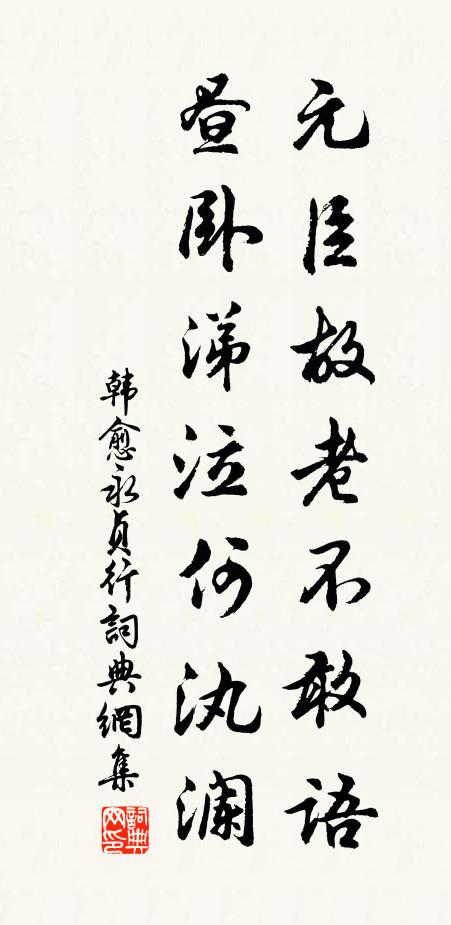 元臣故老不敢語
昼卧涕泣何汍澜
韩愈永貞行詞典網集
詞典网印